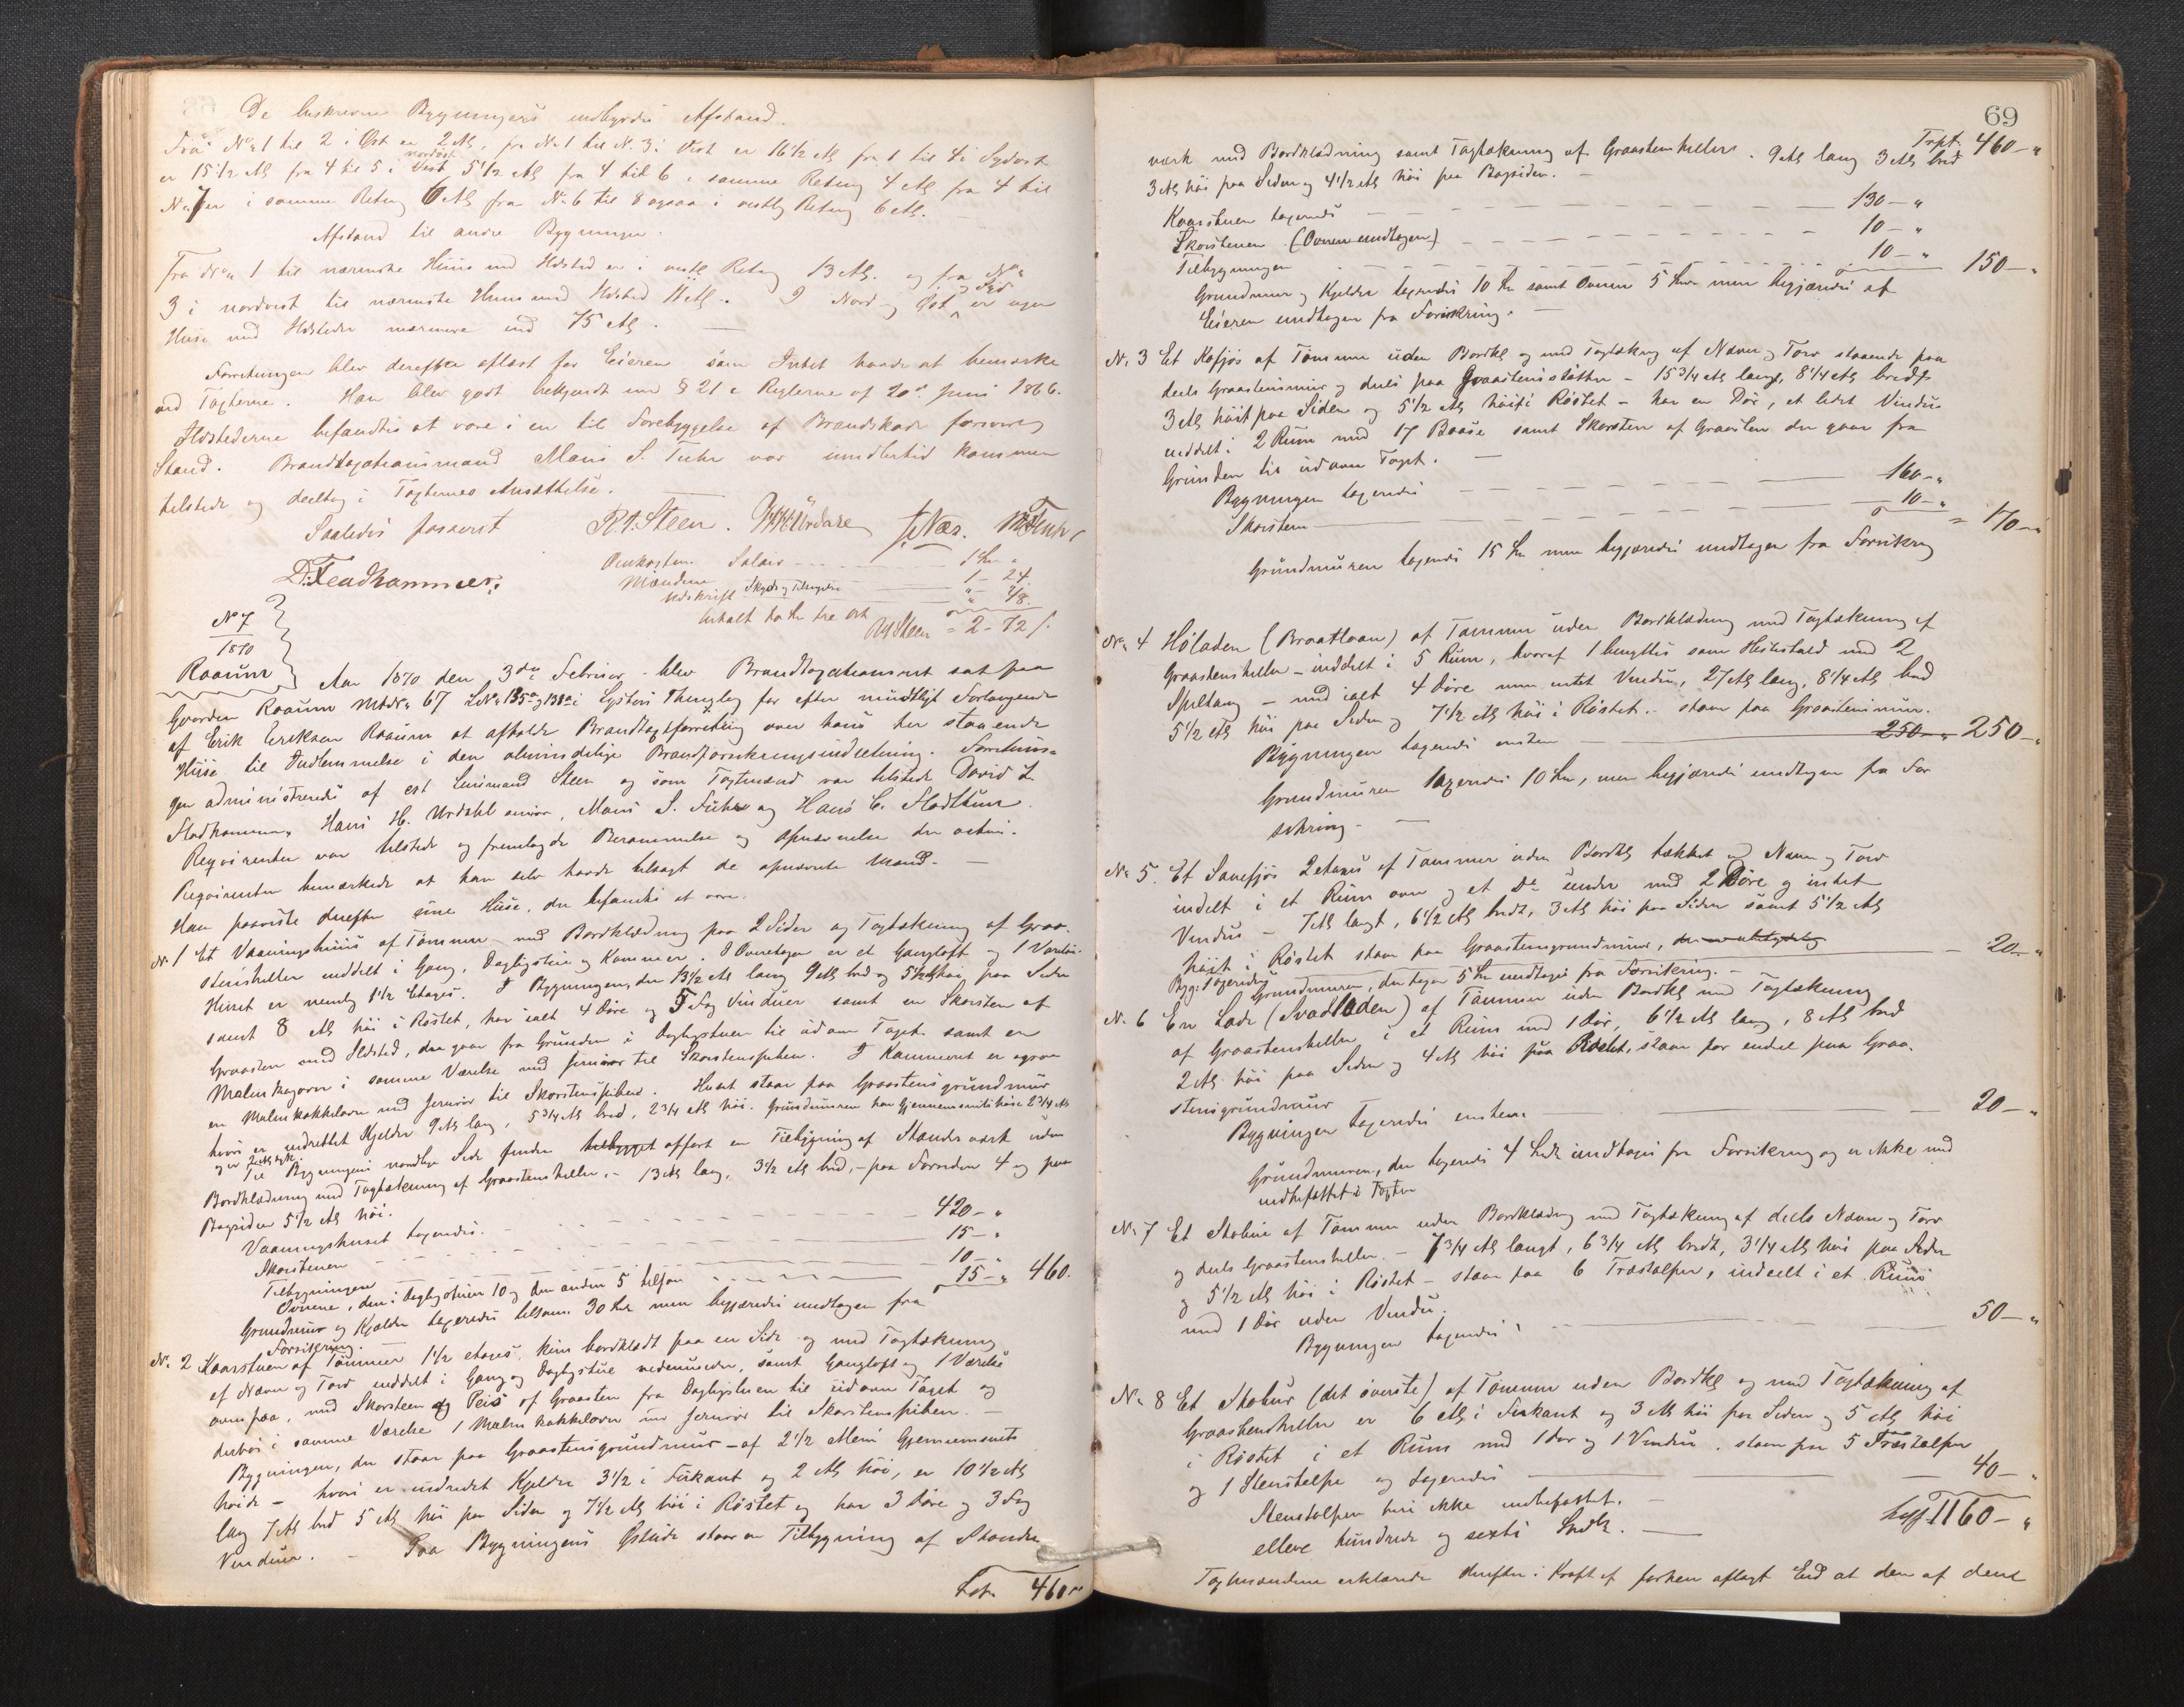 De beskrevne Bygningers indbyrdes Afstand.
Fra No 1 til 2 i Øst er 2 Al, fra No 1 til No 3 i Vest er 16 1/2 Al fra 1 til 4 i Sydvest
er 15 1/2 Al fra 4 til 5 i nordøst 5 1/2 Al fra 4 til 6 i samme Retng 4 Al fra 4 til
No 7 er i samme Retng 6 Al fra No 6 til 8 ogsaa i vestlig Retng 6 Al.
Afstand til andre Bygninger.
Fra No 1 til nærmeste Huus med Ildsted er i vestl Retng 13 Al. og fra No
3 i nordvest til nærmeste Huus med Ildsted 11 Al. I Nord og Øst og Syd er ingen
Huse med Ildsteder nærmere end 75 Al.
Forretningen blev derefter oplæst for Eieren som Intet havde at bemærke
ved Taxterne. Han blev gjort bekjendt med § 21 i Reglerne af 20de Juni 1866.
Ildstederne befandtes at være i en til Forebyggelse af Brandskade forsvarlig
Stand. Brandtaxationsmand Mons S. Fuhr var imidlertid kommen
tilstede og deeltog i Taxternes Ansættelse.
Saaledes passeret R.A. Steen. HHUrdahl J. Næs. MSFuhr
D. Fladhammer.
Omkostn. Salair 1 Sp. "
Mændene 1 - 24.
Udskrift Skyds og Tilsigelse " 48.
betalt to Sp tre ort RASteen = 2 - 72 /.
No 7
1870
Raaum
Aar 1870 den 3die Februar blev Brandtaxationsret sat paa
Gaarden Raaum Mtr No 67 LNo 135a og 138a i Lysters Thinglag for efter mundtligt Forlangende
af Erik Eriksen Raaum at afholde Brandtaxtforretning over hans her staaende
Huse til Indlemmelse i den almindelige Brandforsikringsindretning. Forretnin-
gen administreredes af cst Lensmand Steen og som Taxtmænd var tilstede David L.
Fladhammer, Hans H. Urdahl senior, Mons S. Fuhr og Hans C. Flodthun.
Reqvirenten var tilstede og fremlagde Berammelse og Opnævnelse der acteres.
Reqvirenten bemærkede at han selv havde tilsagt de opnævnte Mænd. —
Han paaviste derefter sine Huse, der befandtes at være.
No 1 Et Vaaningshuus af Tømmer med Bordklædning paa 2 Sider og Tagtækning af Graa-
stensheller inddelt i Gang, Dagligstue og Kammer. I Overetagen er et Gangloft og 1 Værelse.
Huset er nemlig 1 1/2 Etages. I Bygningen, der 13 1/2 Al lang 9 Al bred og 5 1/2 Al høi paa Siden
samt 8 Al høi i Røstet, har ialt 4 Døre og 5 Fag Vinduer samt en Skorsten af
Graasten med Ildsted, der gaar fra Grunden i Dagligstuen til udover Taget samt en
Malmkagovn i samme Værelse med Jernrør til Skorstenspiben. I Kammeret er ogsaa
en Malmkakkelovn med Jernrør til Skorstenspiben. Huset staar paa Graastensgrundmur
hvori er indrettet Kjelder 9 Al lang, 5 3/4 Al bred, 2 3/4 Al høi. Grundmuren har Gjennemsnitshøie 2 3/4 Al
og er 2 Al tyk. Til Bygningens nordlige Side findes opført en Tilbygning af Stænderværk uden
Bordklædning med Tagtækning af Graastenshelleer. — 13 Al lang, 3 1/2 Al bred, — paa Forsiden 4 og paa
Bagsiden 5 1/2 Al høi.
Vaaningshuset taxeredes. 420 — "
Skorstenen 15 — "
Tilbygningen 10 — "
Ovnene, den i Dagligstuen 10 og den anden 5 tilsam 15 — " 460.
Grundmur og Kjelder taxeredes tilsam. 30 Spd men begjæredes undtagen fra
Forsikring.
No 2 Kaarstuen af Tømmer 1 1/2 etages, kun bordklædt paa en Side og med Tagtækning
af Næver og Torv inddelt i Gang og Dagligstue nedenunder, samt Gangloft og 1 Værelse
ovenpaa, med Skorsteen og Peis af Graasten fra Dagligstuen til udover Taget og
derhos i samme Værelse 1 Malmkakkelovn med Jernrør til Skorstenspiben. —
Bygningen, der staar paa Graastensgrundmur — af 2 1/2 Alens Gjennemsnits
høide — hvori er indredet Kjelder 3 1/2 i Firkant og 2 Al høi, er 10 1/2 Al
lang 7 Al bred 5 Al høi paa Siden og 7 1/2 Al høi i Røstet og har 3 Døre og 3 Fag
Vinduer. — Paa Bygningens Østside staar en Tilbygning af Stænder
Lat. 460 "
69
Trpt. 460 — "
værk med Bordklædning samt Tagtækning af Graastenshelleer. 9 Al lang 3 Al bred
3 Al høi paa Siden og 4 1/2 Al høi paa Bagsiden. —
Kaarstuen taxeredes 130 — "
Skorstenen (Ovnen undtagen) 10 — "
Tilbygningen 10 — " 150 — "
Grundmur og Kjelder taxeredes 10 Sp samt Ovnen 5 Spd men begjæredes af
Eieren undtagen fra Forsikring. —
No 3 Et Kofjøs af Tømmer uden Bordkl og med Tagtækng af Næver og Torv staaende paa
deels Graastensmur og deels paa Graastensstøtter — 15 3/4 Al langt, 8 1/4 Al bredt
3 Al høit paa Siden og 5 1/2 Al høit i Røstet — har en Dør, et lidet Vindue
inddelt i 2 Rum med 17 Baase samt Skorsten af Graasten der gaar fra
Grunden til udover Taget. —
Bygningen taxeredes 160 — "
Skorsten 10 — " = 170 — "
Grundmuren taxeredes 15 Sp men begjæredes undtagen fra Forsikring
No 4 Høladen (Braatloan) af Tømmer uden Bordklædning med Tagtækning af
Graastenshelleer — inddelt i 5 Rum, hvoraf 1 benyttes som Hestestald med 2
Spiltaug — med ialt 4 Døre men intet Vindue, 27 Al lang, 8 1/4 Al bred
5 1/2 Al høi paa Siden og 7 1/2 Al høi i Røstet. — staar paa Graastensmur.
Bygningen taxeredes ensten 250 — " 250 — "
Grundmuren taxeredes 10 Sp, men begjæredes undtagen fra For
sikring. —
No 5. Et Sauefjøs 2 etages af Tømmer uden Bordkl tækket med Næver og Torv
indelt i et Rum over og et Do under med 2 Døre og intet
Vindue — 7 Al langt, 6 1/2 Al bredt, 3 Al høi paa Siden samt 5 1/2 Al
høit i Røstet staar paa Graastensgrundmur,
Byg: Taxeredes 20 — "
Grundmuren, der taxer 5 Sp undtages fra Forsikring. —
No 6 En Lade (Svadladen) af Tømmer uden Bordkl med Tagtækning
af Graastenshelleer i et Rum med 1 Dør, 6 1/2 Al lang, 8 Al bred
2 Al høi paa Siden og 4 Al høi paa Røstet, staar for endel paa Graa-
stensgrundmur
Bygningen taxeredes ensten 20 — "
Grundmuren, der taxeredes 4 Spd undtages fra Forsikring og er ikke med
indbefattet i Taxten
No 7 Et Stabur af Tømmer uden Bordklædng med Tagtækning af deels Næver og Torv
og deels Graastenshelleer. — 7 3/4 Al langt, 6 3/4 Al bredt, 3 1/4 Al høi paa Siden
og 5 1/2 Al høi i Røstet — staar paa 6 Træstolper, indeelt i et Rum
med 1 Dør uden Vindu.
Bygningen taxeredes 50 — "
No 8 Et Stabur (det øverste) af Tømmer uden Bordkl og med Tagtækning af
Graastenshelleer er 6 Al i Firkant og 3 Al høi paa Siden og 5 Al høi
i Røstet i et Rum med 1 Dør og 1 Vindue, staar paa 5 Træstolper
og 1 Stenstolpe og taxeredes 40 — "
Stenstolpen heri ikke indbefattet. —
elleve hundrede og sexti Spdlr. — 1160 — "
Taxtmændene erklærede derefter i Kraft af forhen aflagt Eed at den af dem